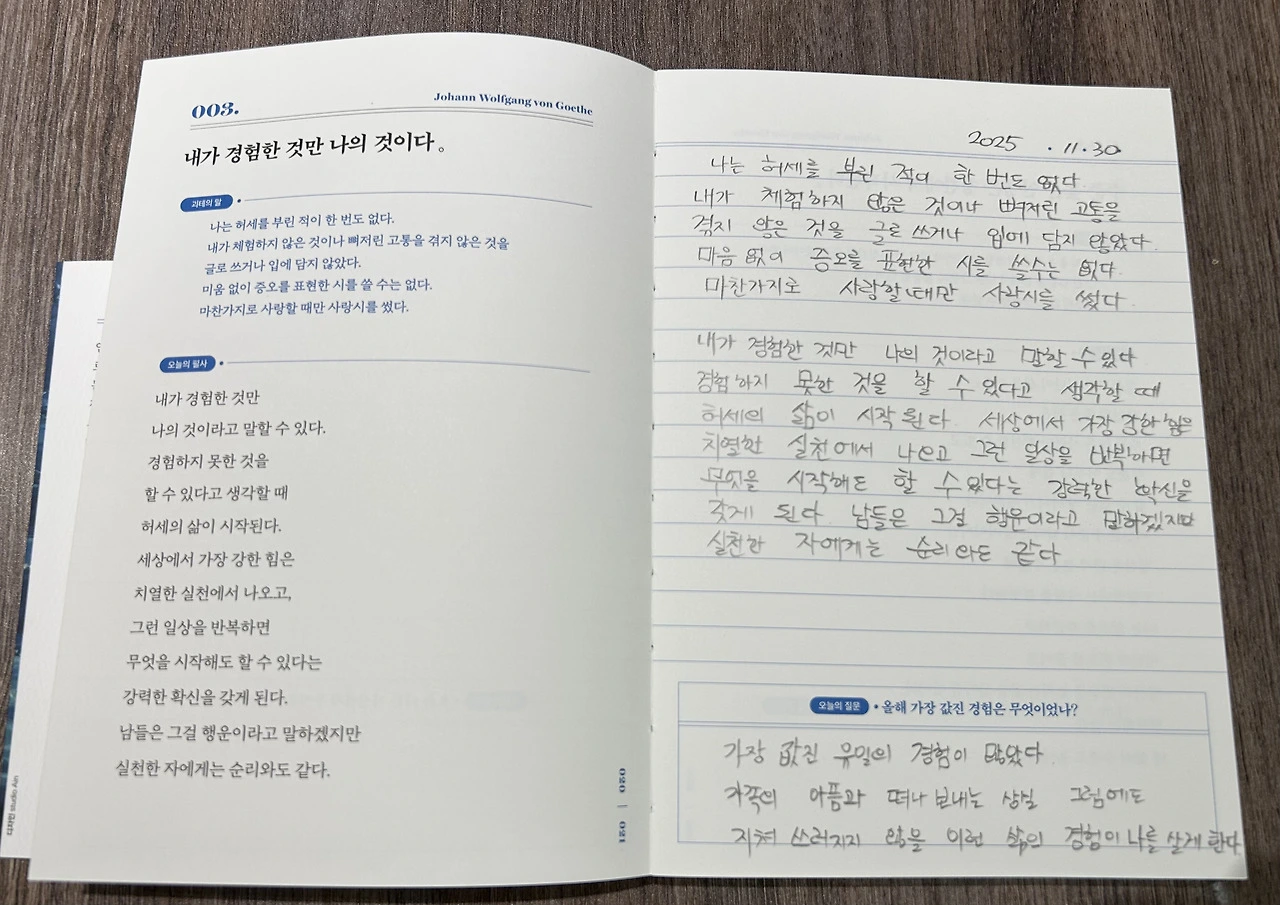 003.
Johann Wolfgang von Goethe
내가 경험한 것만 나의 것이다.
괴테의 말
나는 허세를 부린 적이 한 번도 없다.
내가 체험하지 않은 것이나 뼈저린 고통을 겪지 않은 것을
글로 쓰거나 입에 담지 않았다.
미움 없이 증오를 표현한 시를 쓸 수는 없다.
마찬가지로 사랑할 때만 사랑시를 썼다.
오늘의 필사
내가 경험한 것만
나의 것이라고 말할 수 있다.
경험하지 못한 것을
할 수 있다고 생각할 때
허세의 삶이 시작된다.
세상에서 가장 강한 힘은
치열한 실천에서 나오고,
그런 일상을 반복하면
무엇을 시작해도 할 수 있다는
강력한 확신을 갖게 된다.
남들은 그걸 행운이라고 말하겠지만
실천한 자에게는 순리와도 같다.
020 | 021
디자인 studio Ain
2025 . 11. 30
나는 허세를 부린 적이 한 번도 없다.
내가 체험하지 않은 것이나 뼈저린 고통을
겪지 않은 것을 글로 쓰거나 입에 담지 않았다.
마음 없이 증오를 표현한 시를 쓸수는 없다.
마찬가지로 사랑할 때만 사랑시를 썼다.
내가 경험한 것만 나의 것이라고 말할 수 있다
경험하지 못한 것을 할 수 있다고 생각할 때
허세의 삶이 시작된다. 세상에서 가장 강한 힘은
치열한 실천에서 나오고 그런 일상을 반복하면
무엇을 시작해도 할 수 있다는 강력한 확신을
갖게 된다. 남들은 그걸 행운이라고 말하겠지만
실천한 자에게는 순리와도 같다
오늘의 질문 • 올해 가장 값진 경험은 무엇이었나?
가장 값진 유일의 경험이 많았다.
가족의 아픔과 떠나 보내는 상실 그럼에도
지쳐 쓰러지지 않을 이런 삶의 경험이 나를 살게 한다